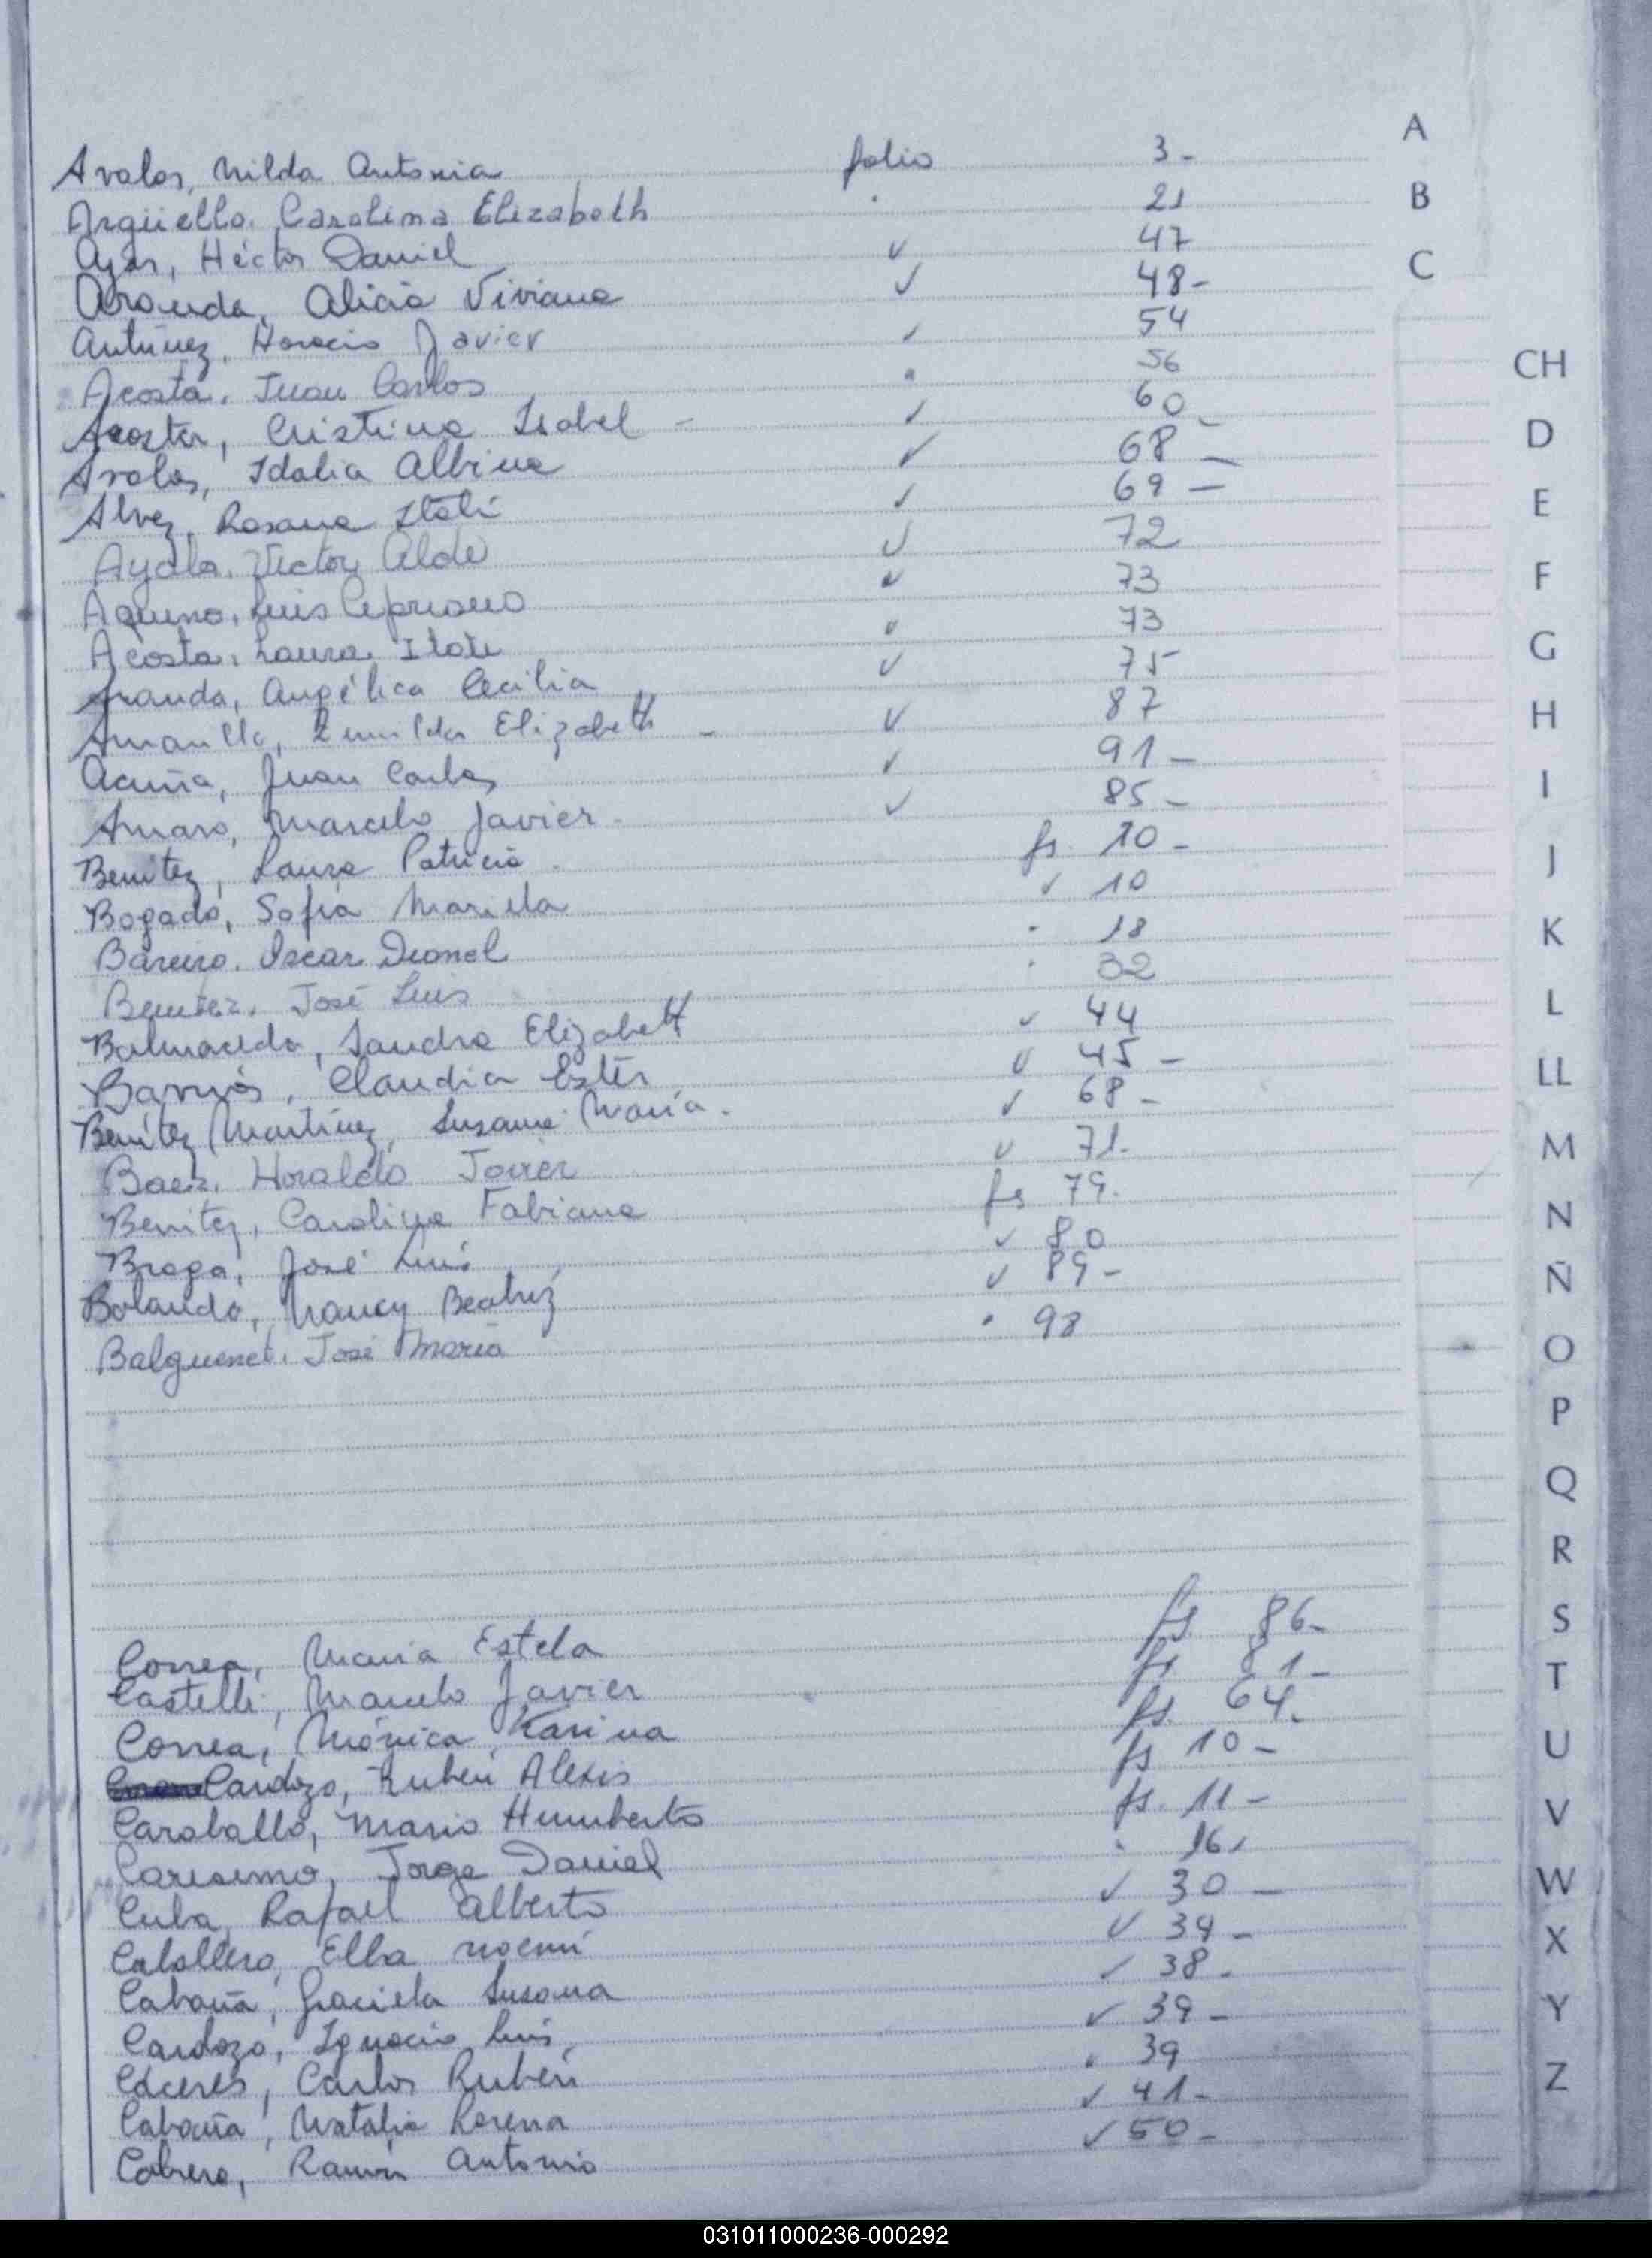 Avalos, Nilda Antonia folio 3-
Argüello, Carolina Elizabeth " 21
Ayas, Héctor Daniel ✓ 47
Aranda, Alicia Viviana ✓ 48-
Antúnez, Horacio Javier ✓ 54
Acosta, Juan Carlos " 56
Acosta, Cristina Isabel - ✓ 60-
Avalos, Idalia Albina ✓ 68-
Alvez, Rosana Itatí ✓ 69-
Ayala, Victor Alde ✓ 72
Aquino, Luis Cipriano ✓ 73
Acosta, Laura Itati ✓ 73
Aranda, Angélica Cecilia ✓ 75
Amarilla, Zunilda Elizabeth - ✓ 87
Acuña, Juan Carlos ✓ 91-
Amaro, Marcelo Javier - ✓ 85-
Benítez, Laura Patricia - fs. 10-
Bogado, Sofía Mariela ✓ 10
Bareiro, Oscar Dionel " 18
Benitez, José Luis " 32
Balmaceda, Sandra Elizabeth ✓ 44
Barrios, Claudia Ester ✓ 45-
Benítez Martínez, Susana María. ✓ 68-
Baez, Horaldo Javier ✓ 71-
Benitez, Carolina Fabiana fs 79-
Braga, José Luis ✓ 80
Bolando, Nancy Beatriz ✓ 89-
Balquenet, José Maria " 98
Correa, Maria Estela fs. 86-
Castelli, Marcelo Javier fs 81-
Correa, Mónica Karina fs. 64-
Cardozo, Rubén Alexis fs 10-
Caraballo, Mario Humberto fs. 11-
Caresimo, Jorge Daniel " 16-
Cuba, Rafael Alberto ✓ 30-
Caballero, Elba Noemí ✓ 34-
Cabaña, Graciela Susana ✓ 38-
Cardozo, Ignacio Luis ✓ 39-
Cáceres, Carlos Rubén " 39
Cabaña, Natalia Lorena ✓ 41-
Cabrera, Ramón Antonio ✓ 50-
A
B
C
CH
D
E
F
G
H
I
J
K
L
LL
M
N
Ñ
O
P
Q
R
S
T
U
V
W
X
Y
Z
031011000236-000292